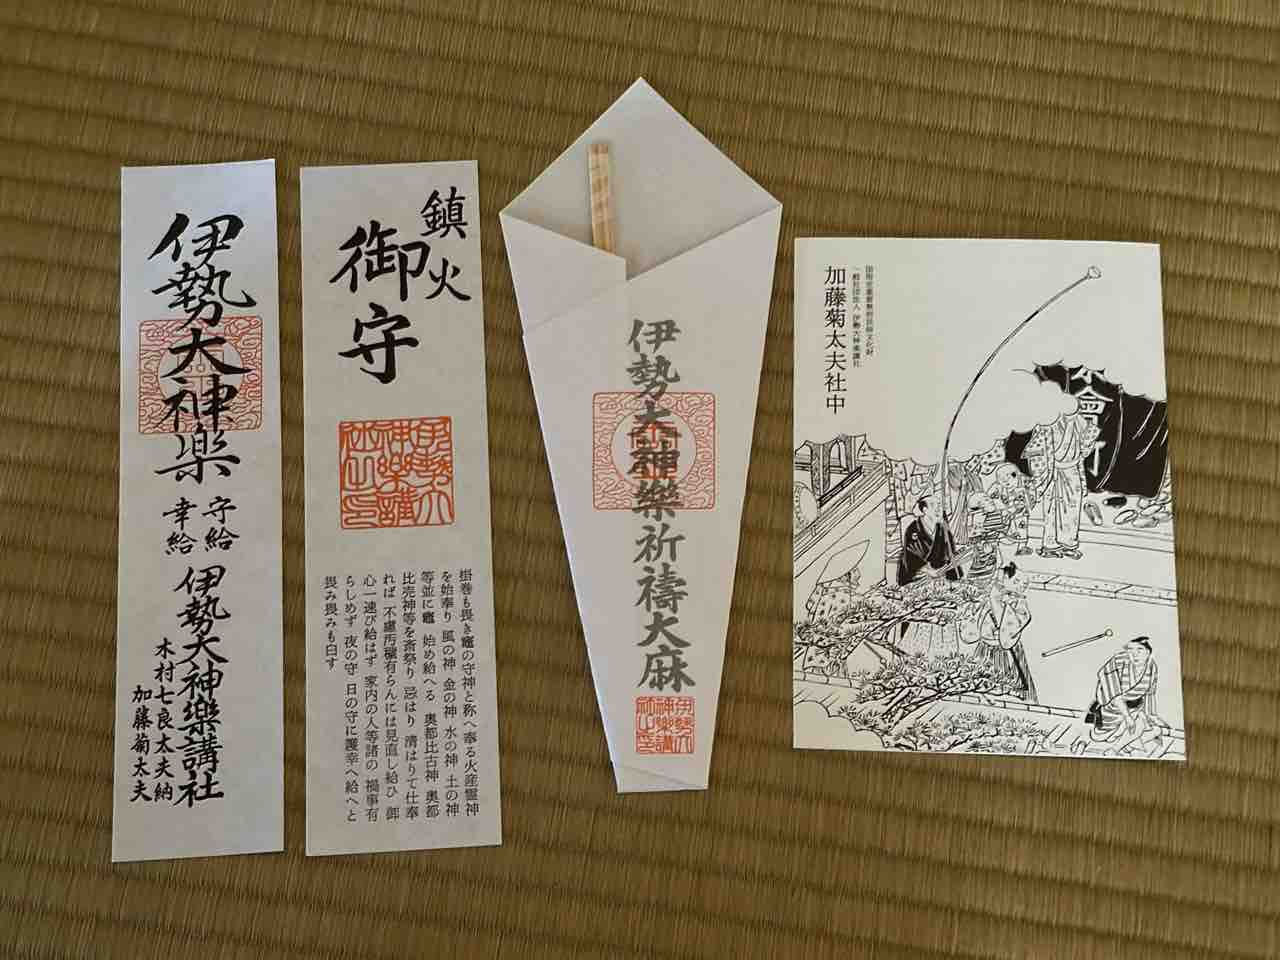 伊勢大神楽
守給
幸給
伊勢大神樂講社
木村七良太夫納
加藤菊太夫
鎮火
御守
伊勢大
神樂講
社之印
掛巻も畏き竈の守神と称へ奉る火産霊神
を始奉り 風の神 金の神 水の神 土の神
等並に竈 始め給へる 奥都比古神 奥都
比売神等を斎祭り 忌はり 清はりて仕奉
れば 不慮汚穢有らんには見直し給ひ 御
心一速び給はず 家内の人等諸の 禍事有
らしめず 夜の守 日の守に護幸へ給へと
畏み畏みも白す
伊勢大神樂祈禱大麻
伊勢大
神樂講
社之印
国指定重要無形民俗文化財
一般社団法人 伊勢大神楽講社
加藤菊太夫社中